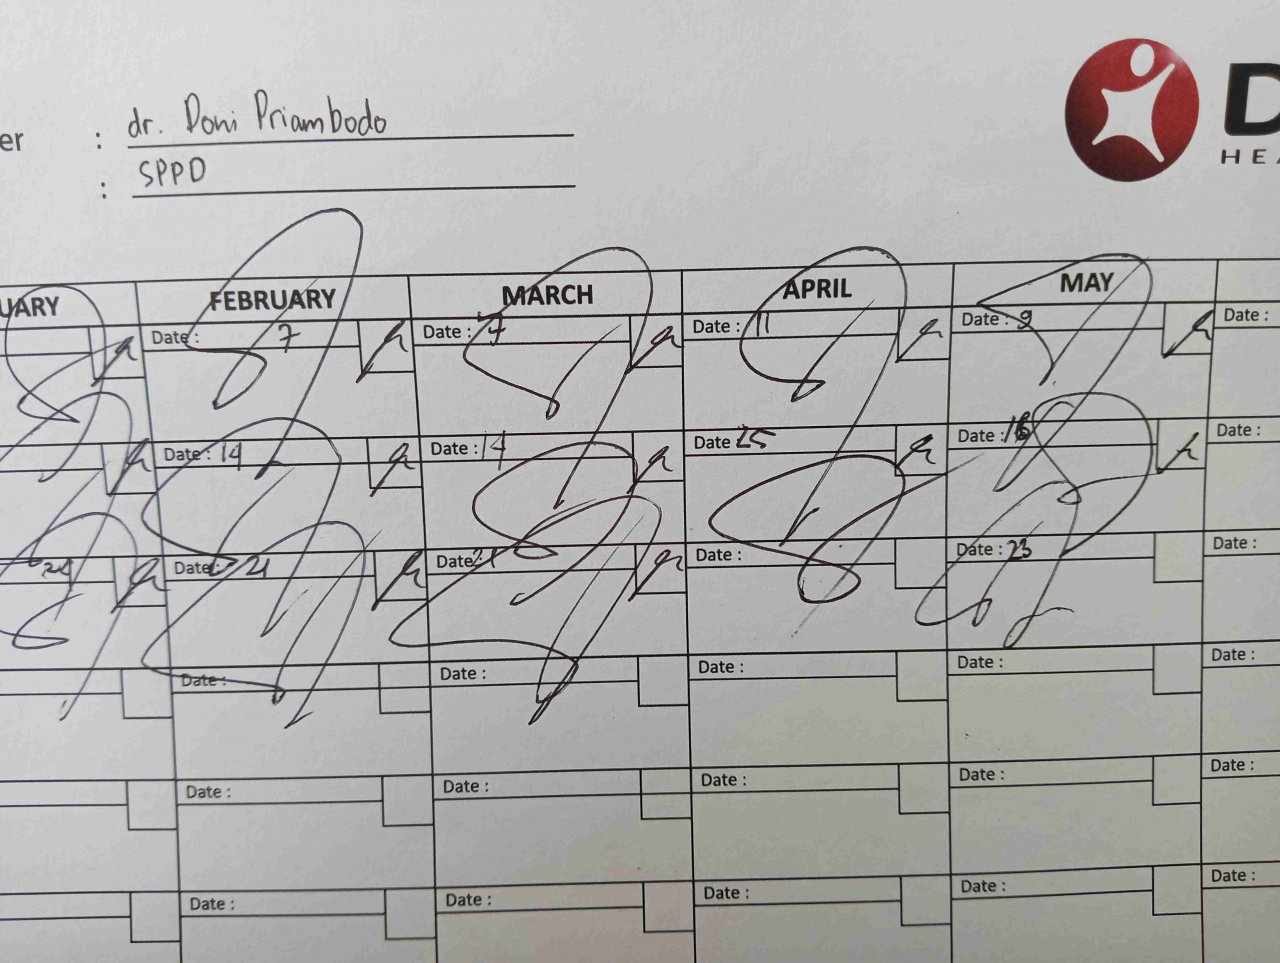 er : dr. Doni Priambodo
: SPPD
D
HEA
UARY FEBRUARY MARCH APRIL MAY
Date : 7 Date : 7 Date : 11 Date : 9 Date :
Date : 14 Date : 14 Date 25 Date : 16 Date :
Date : 21 Date : 21 Date : Date : 23 Date :
Date : Date : Date : Date : Date :
Date : Date : Date : Date : Date :
Date : Date : Date : Date : Date :